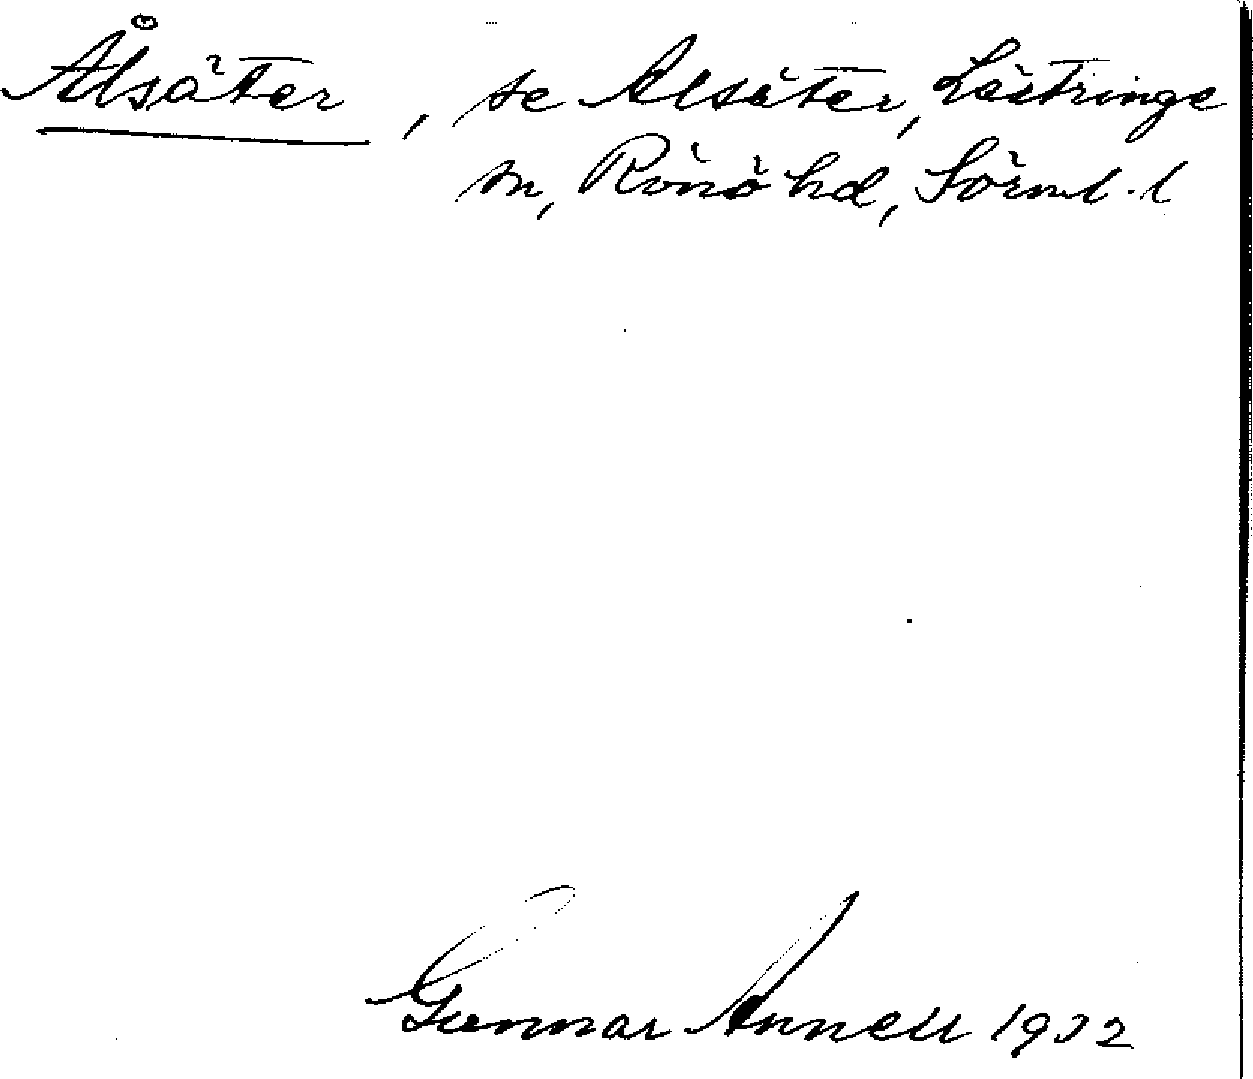 Ålsäter, se Alsäter, Lästringe
sn, Rönö hd, Sörml. l
Gunnar Annell 1932